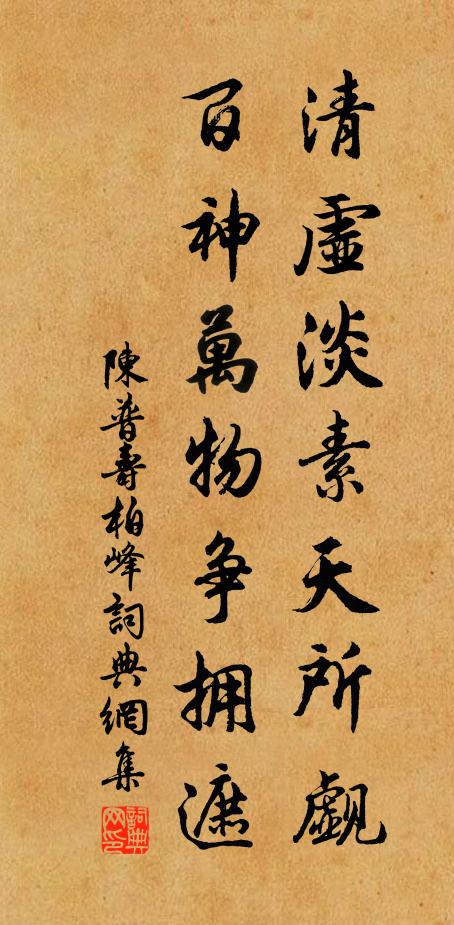 清虛淡素天所覷
百神萬物争拥遮
陳普壽柏峰詞典網集
詞典网印